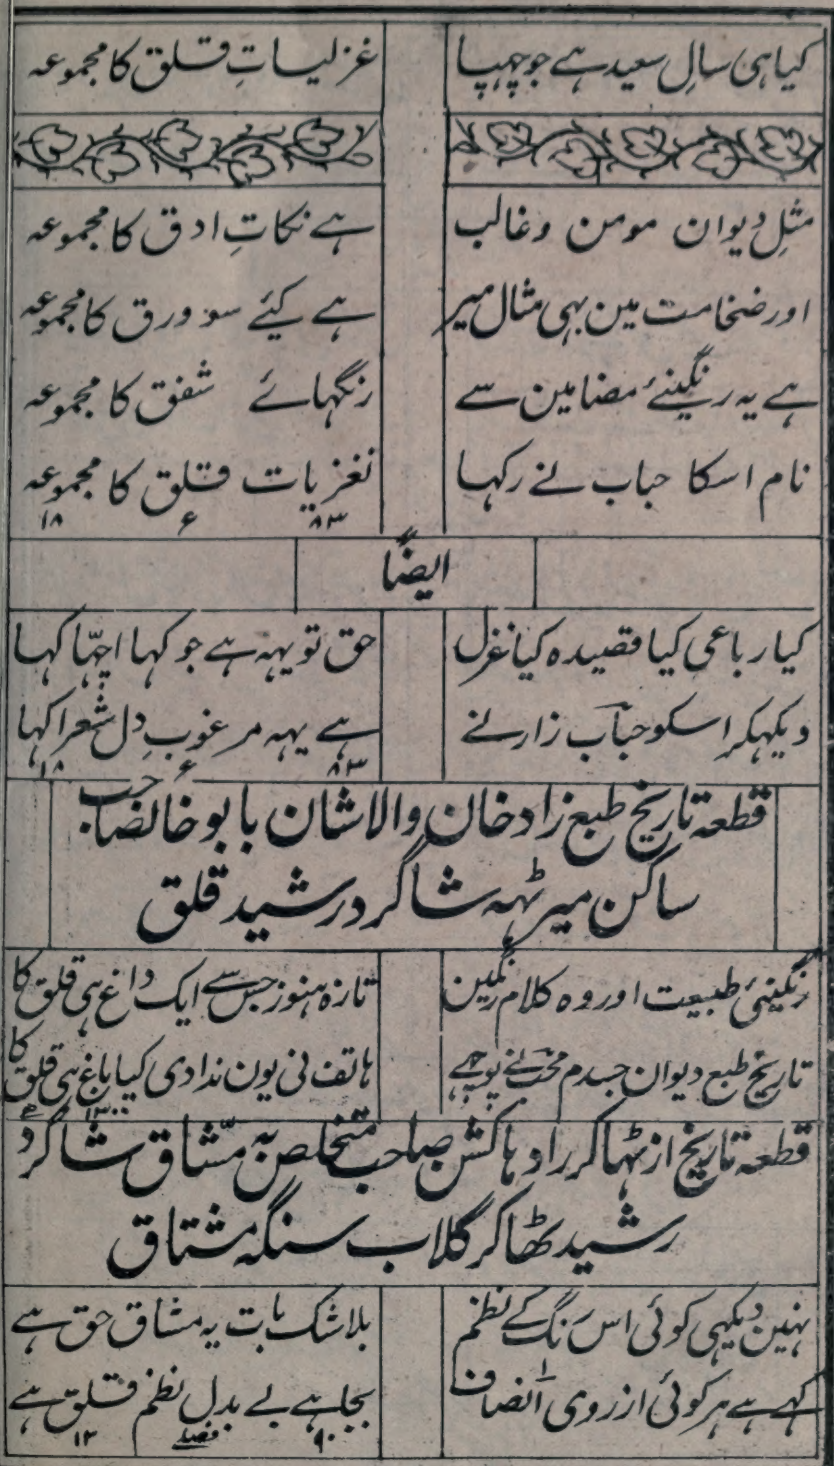 کیا ہی سالِ سعید ہے جو چھپا غزلیاتِ قلق کا مجموعہ
مثلِ دیوان مومن و غالب ہے نکاتِ ادق کا مجموعہ
اور ضخامت مین بہی مثال میر ہے کیئے سو ورق کا مجموعہ
ہے یہ رنگینئے مضامین سے رنگہائے شفق کا مجموعہ
نام اسکا حباب نے رکہا نغزیات قلق کا مجموعہ
۱۸ ء ۸۳
ایضاً
کیا رباعی کیا قصیدہ کیا غزل حق تو یہہ ہے جو کہا اچہّا کہا
دیکہکر اسکو حباب زار نے ہے یہہ مرغوبِ دل شعرا کہا
۱۸ ء ۸۳
قطعہ تاریخ طبع زاد خان والاشان بابو خانصاحب
ساکن میرٹہہ شاگرد رشید قلق
رنگینئ طبیعت اور وہ کلام رنگین تازہ ہنوز جس سے ایک داغ ہی قلق کا
تاریخ طبع دیوان جسدم نے پوچہے ہاتف نی یون ندا دی کیا باغ ہی قلق کا
۱۳۰۰ ھ
قطعہ تاریخ از ٹہاکر راوہاکشن صاحب متخلص بہ مشّاق شاگرد
رشید ٹھاکر گلاب سنگہ مشتاق
نہین دیکہی کوئی اس رنگ کے نظم بلاشک بات یہ مشاق حق ہے
کہے ہے ہر کوئی از روی انصاف بجا ہے بے بدل نظم قلق ہے
۱۲ فصلے ۹۰